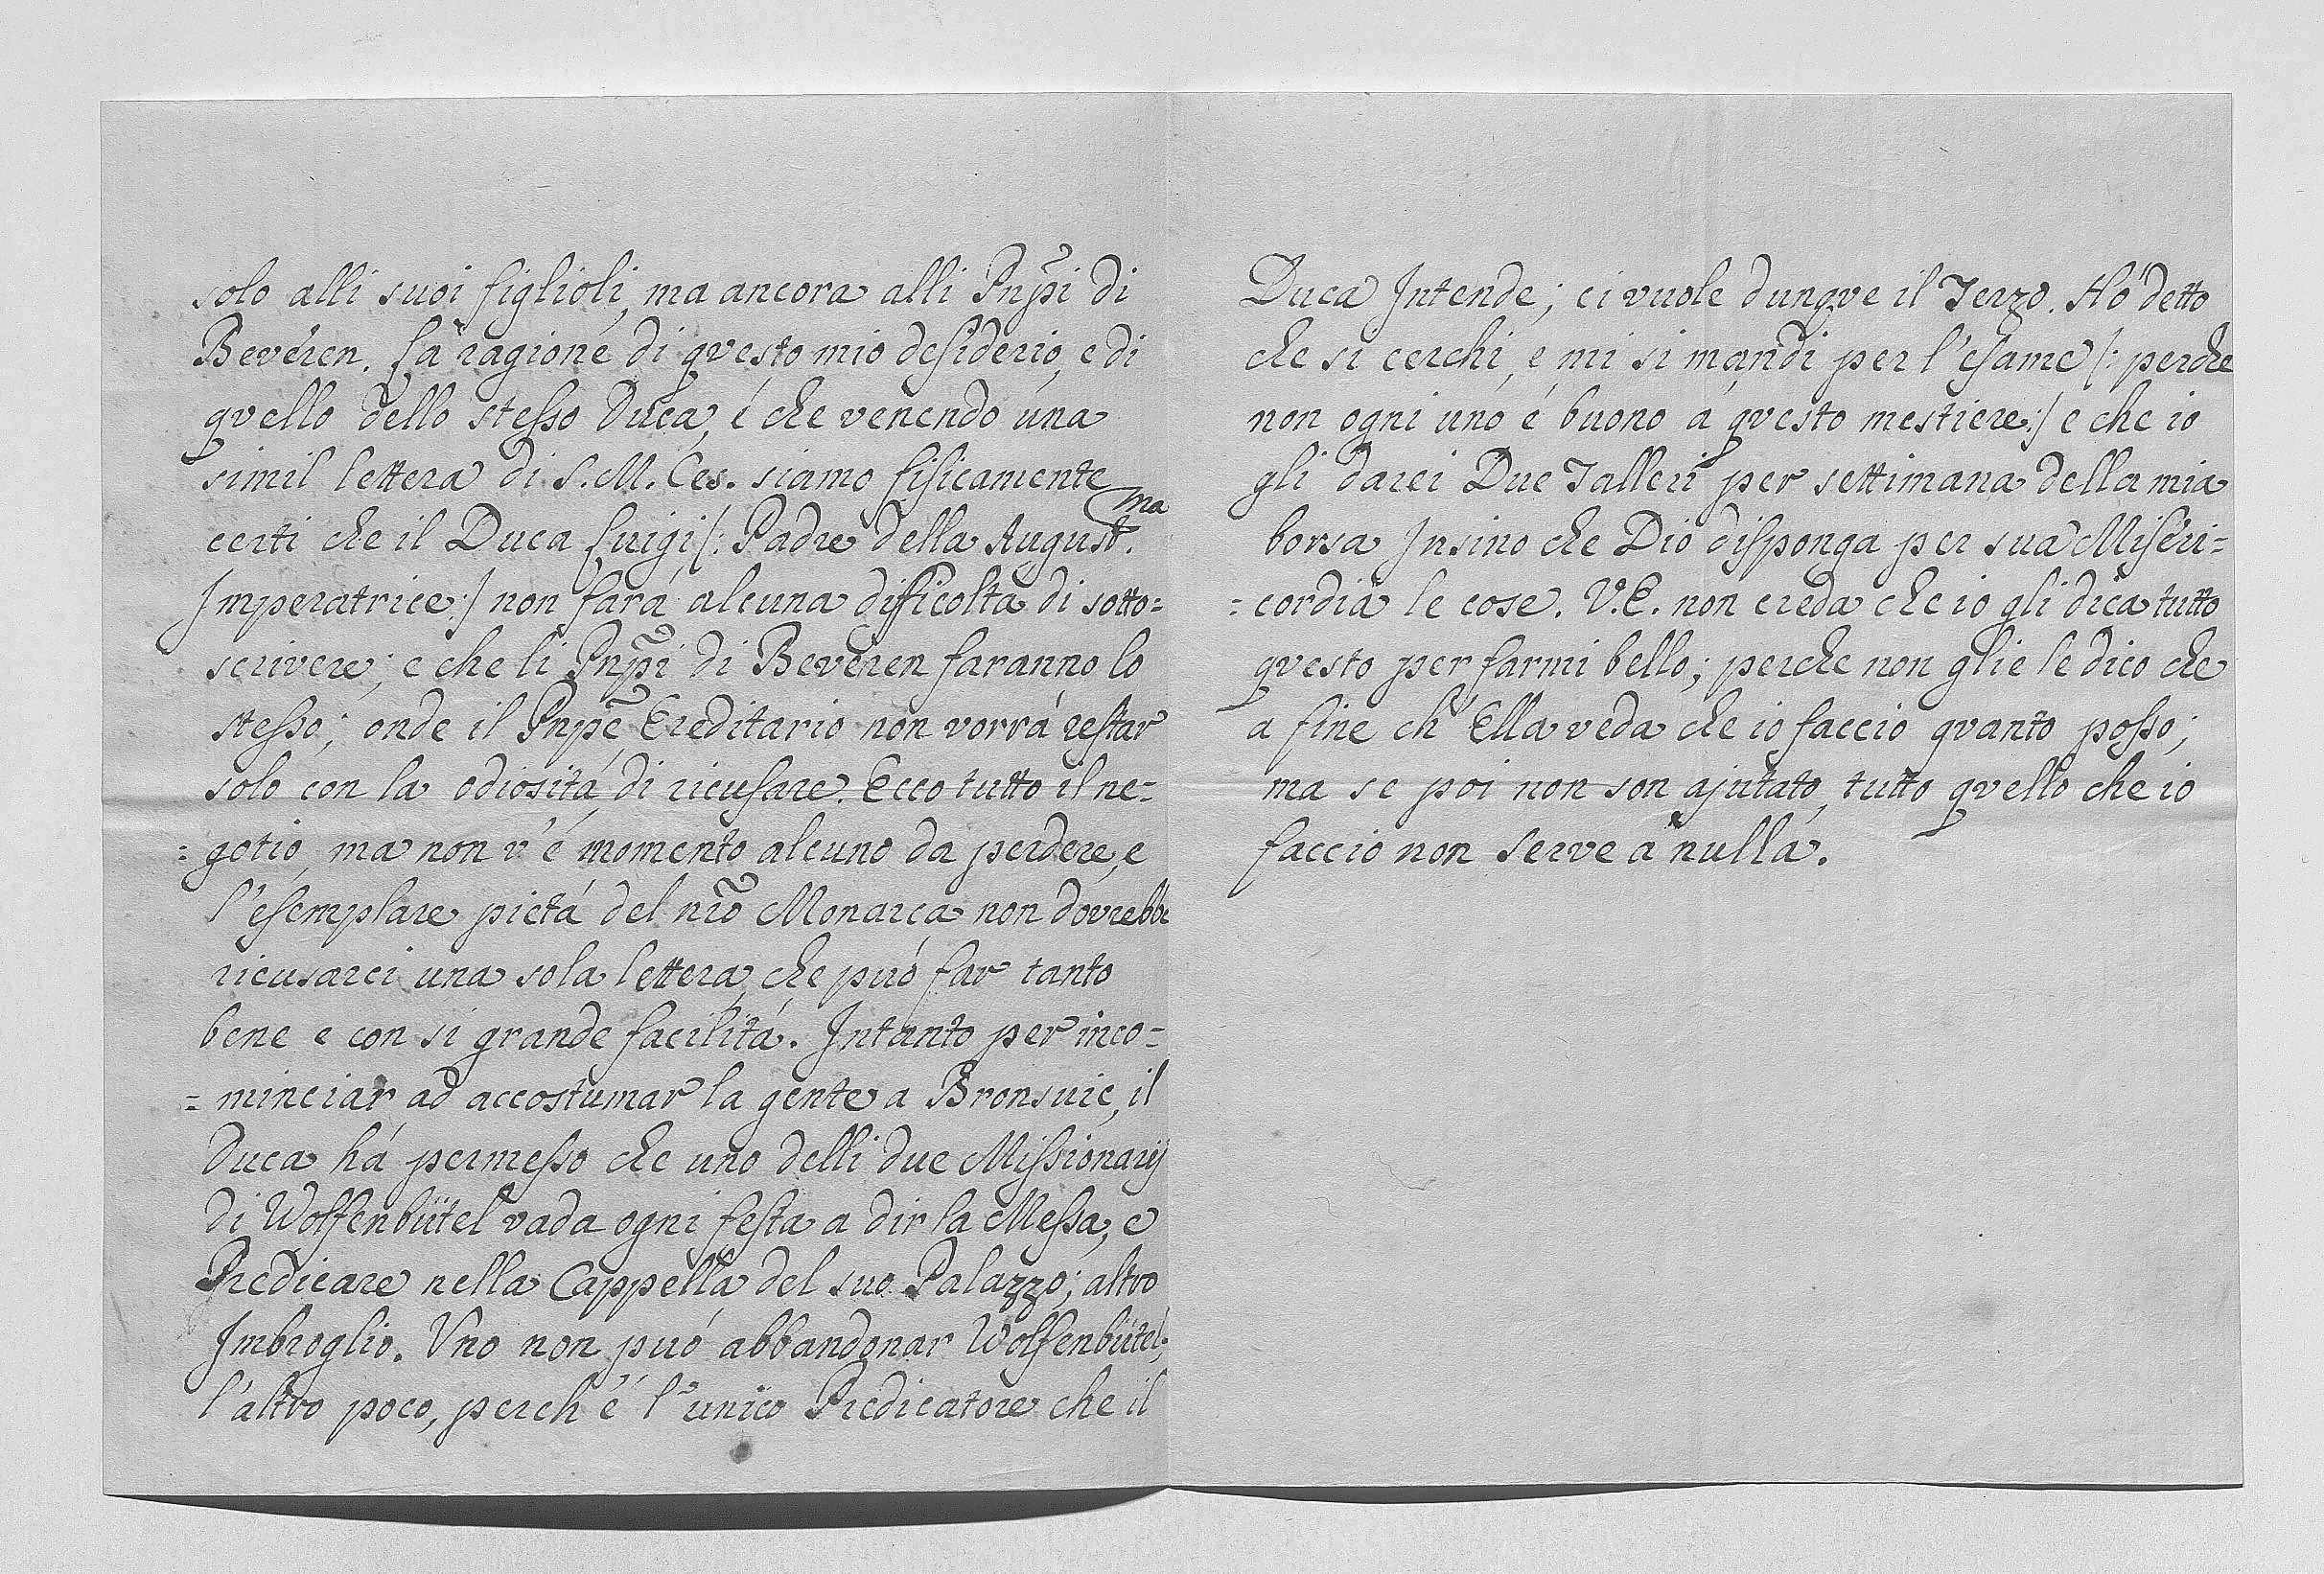 solo alli suoi figlioli, ma ancora alli Pnp̃i di
Beveren. La ragione di qvesto mio desiderio, e di
qvello dello stesso Duca, é che venendo una
simil lettera di S. M. Ces. siamo fisicamente
certi che il Duca Luigi /: Padre della August.ma
Imperatrice :/ non fará alcuna difficoltà di sotto=
scrivere; e che li Pnp̃i di Beveren faranno lo
stesso; onde il Pnp̃e Ereditario non vorrá restar
solo con la odiositá di ricusare. Ecco tutto il ne=
=gotio, ma non v'é momento alcuno da perdere, e
l'esemplare pietá del nr̃o Monarca non dovrebbe
ricusarci una sola lettera, che puó far tanto
bene e con si grande facilitá. Intanto per inco=
=minciar ad accostumar la gente a Bronsuic, il
Duca há permesso che uno delli due Missionarij
di Wolfenbütel vada ogni festa a dir la Messa, e
Predicare nella Cappella del suo Palazzo; altro
Imbroglio. Uno non puó abbandonar Wolfenbütel;
l'altro poco, perch'é l'unico Predicatore che il
Duca Intende; ci vuole dunqve il Terzo. Hó detto
che si cerchi, e mi si mandi per l'esame /: perche
non ogni uno é buono á qvesto mestiere :/ e che io
gli darei Due Talleri per settimana della mia
borsa Insino che Dio disponga per sua Miseri=
=cordia le cose. V. E. non creda che io gli dica tutto
qvesto per farmi bello; perche non glie le dico che
a fine ch'Ella veda che io faccio qvanto posso;
ma se poi non son ajutato, tutto qvello che io
faccio non serve á nulla.